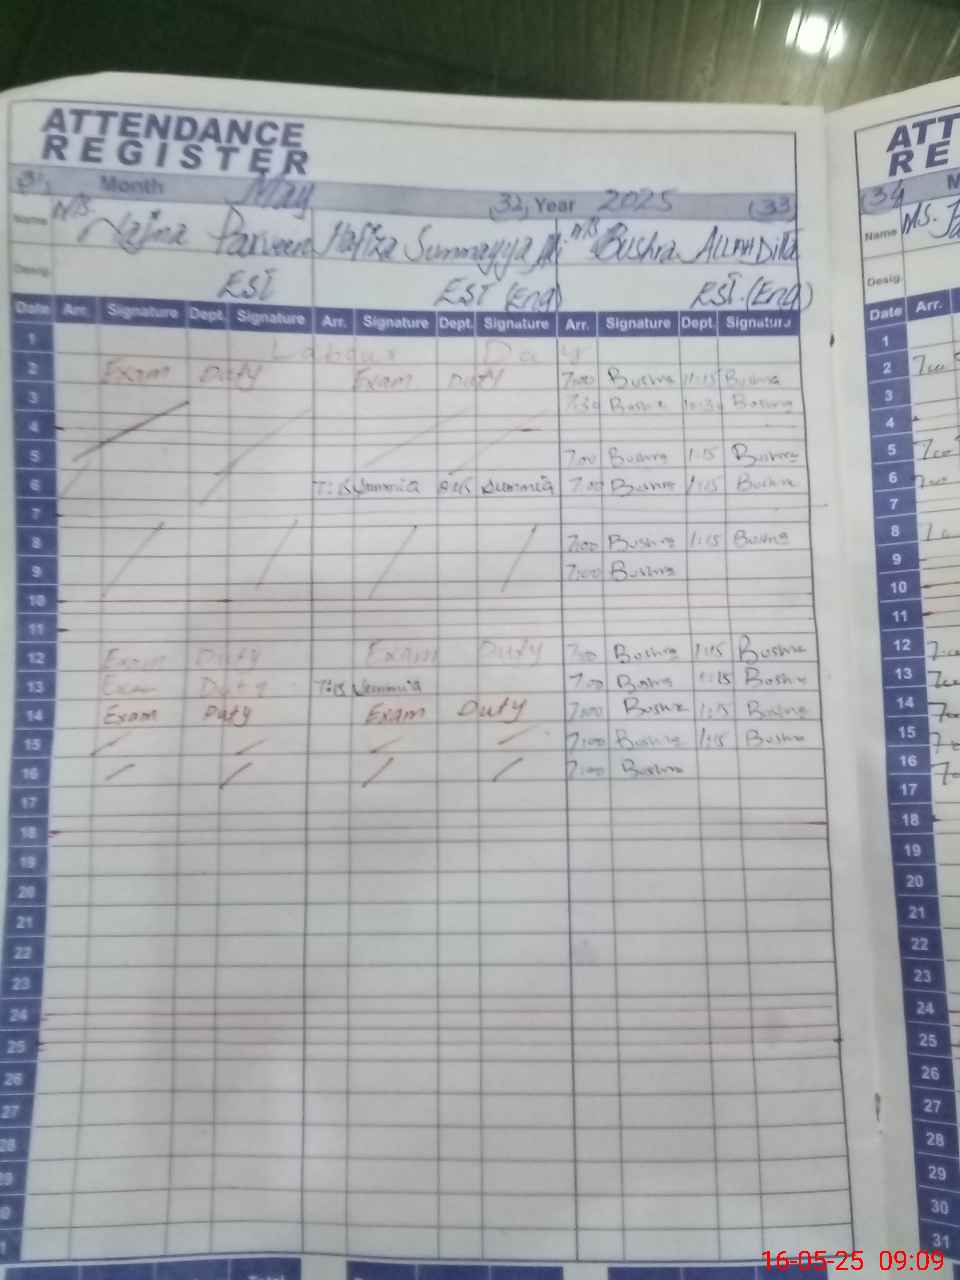 ATTENDANCE
REGISTER
ATT
RE
Month May (32) Year 2025 (33)
(34) M
Name Ms. Najma Parveen Hafiza Summayya Ms Bushra ALLAH Ditta
Name Ms.
Desig. EST EST (Eng) EST.(Eng)
Desig.
Date Arr. Signature Dept. Signature Arr. Signature Dept. Signature Arr. Signature Dept. Signature
Date Arr.
1 Labour Day
1
2 Exam Duty Exam Duty 7:00 Bushra 1:15 Bushra
2
3 7:30 Bushra 10:30 Bushra
3
4
4
5 7:00 Bushra 1:15 Bushra
5
6 7:15 Summia Summia 7:00 Bushra 1:15 Bushra
6
7
7
8 7:00 Bushra 1:15 Bushra
8
9 7:00 Bushra
9
10
10
11
11
12 Exam Duty Exam Duty 7:00 Bushra 1:15 Bushra
12
13 Exam Duty 7:15 Summia 7:00 Bushra 1:15 Bushra
13
14 Exam Duty Exam Duty 7:00 Bushra 1:15 Bushra
14
15 7:00 Bushra 1:15 Bushra
15
16 7:00 Bushra
16
17
17
18
18
19
19
20
20
21
21
22
22
23
23
24
24
25
25
26
26
27
27
28
28
29
29
30
31
16-05-25 09:09
Total